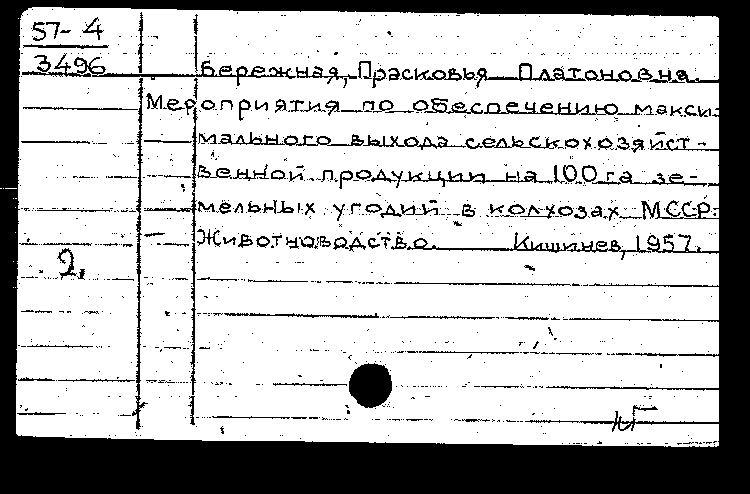 57-4
3496
Бережная, Прасковья Платоновна.
Мероприятия по обеспечению макси-
мального выхода сельскохозяйст-
венной продукции на 100 га зе-
мельных угодий в колхозах МССР.
Животноводство. Кишинев, 1957.
2.